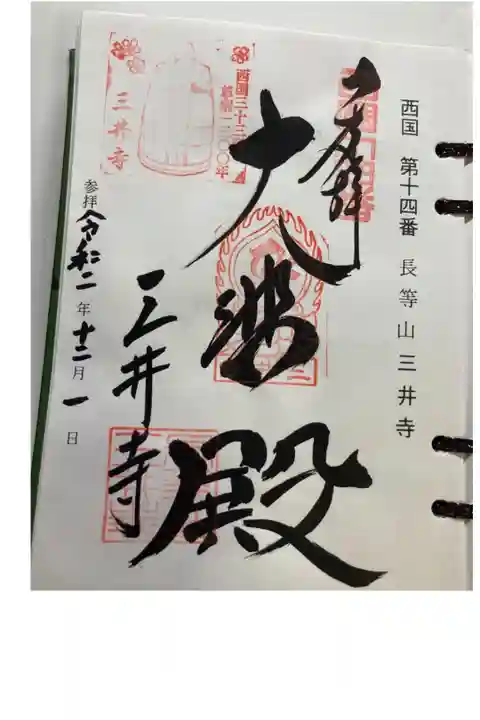 西国 第十四番 長等山 三井寺
奉拝
大悲殿
三井寺
参拝 令和二年十二月一日
西国三十三所
草創一三〇〇年
三井寺